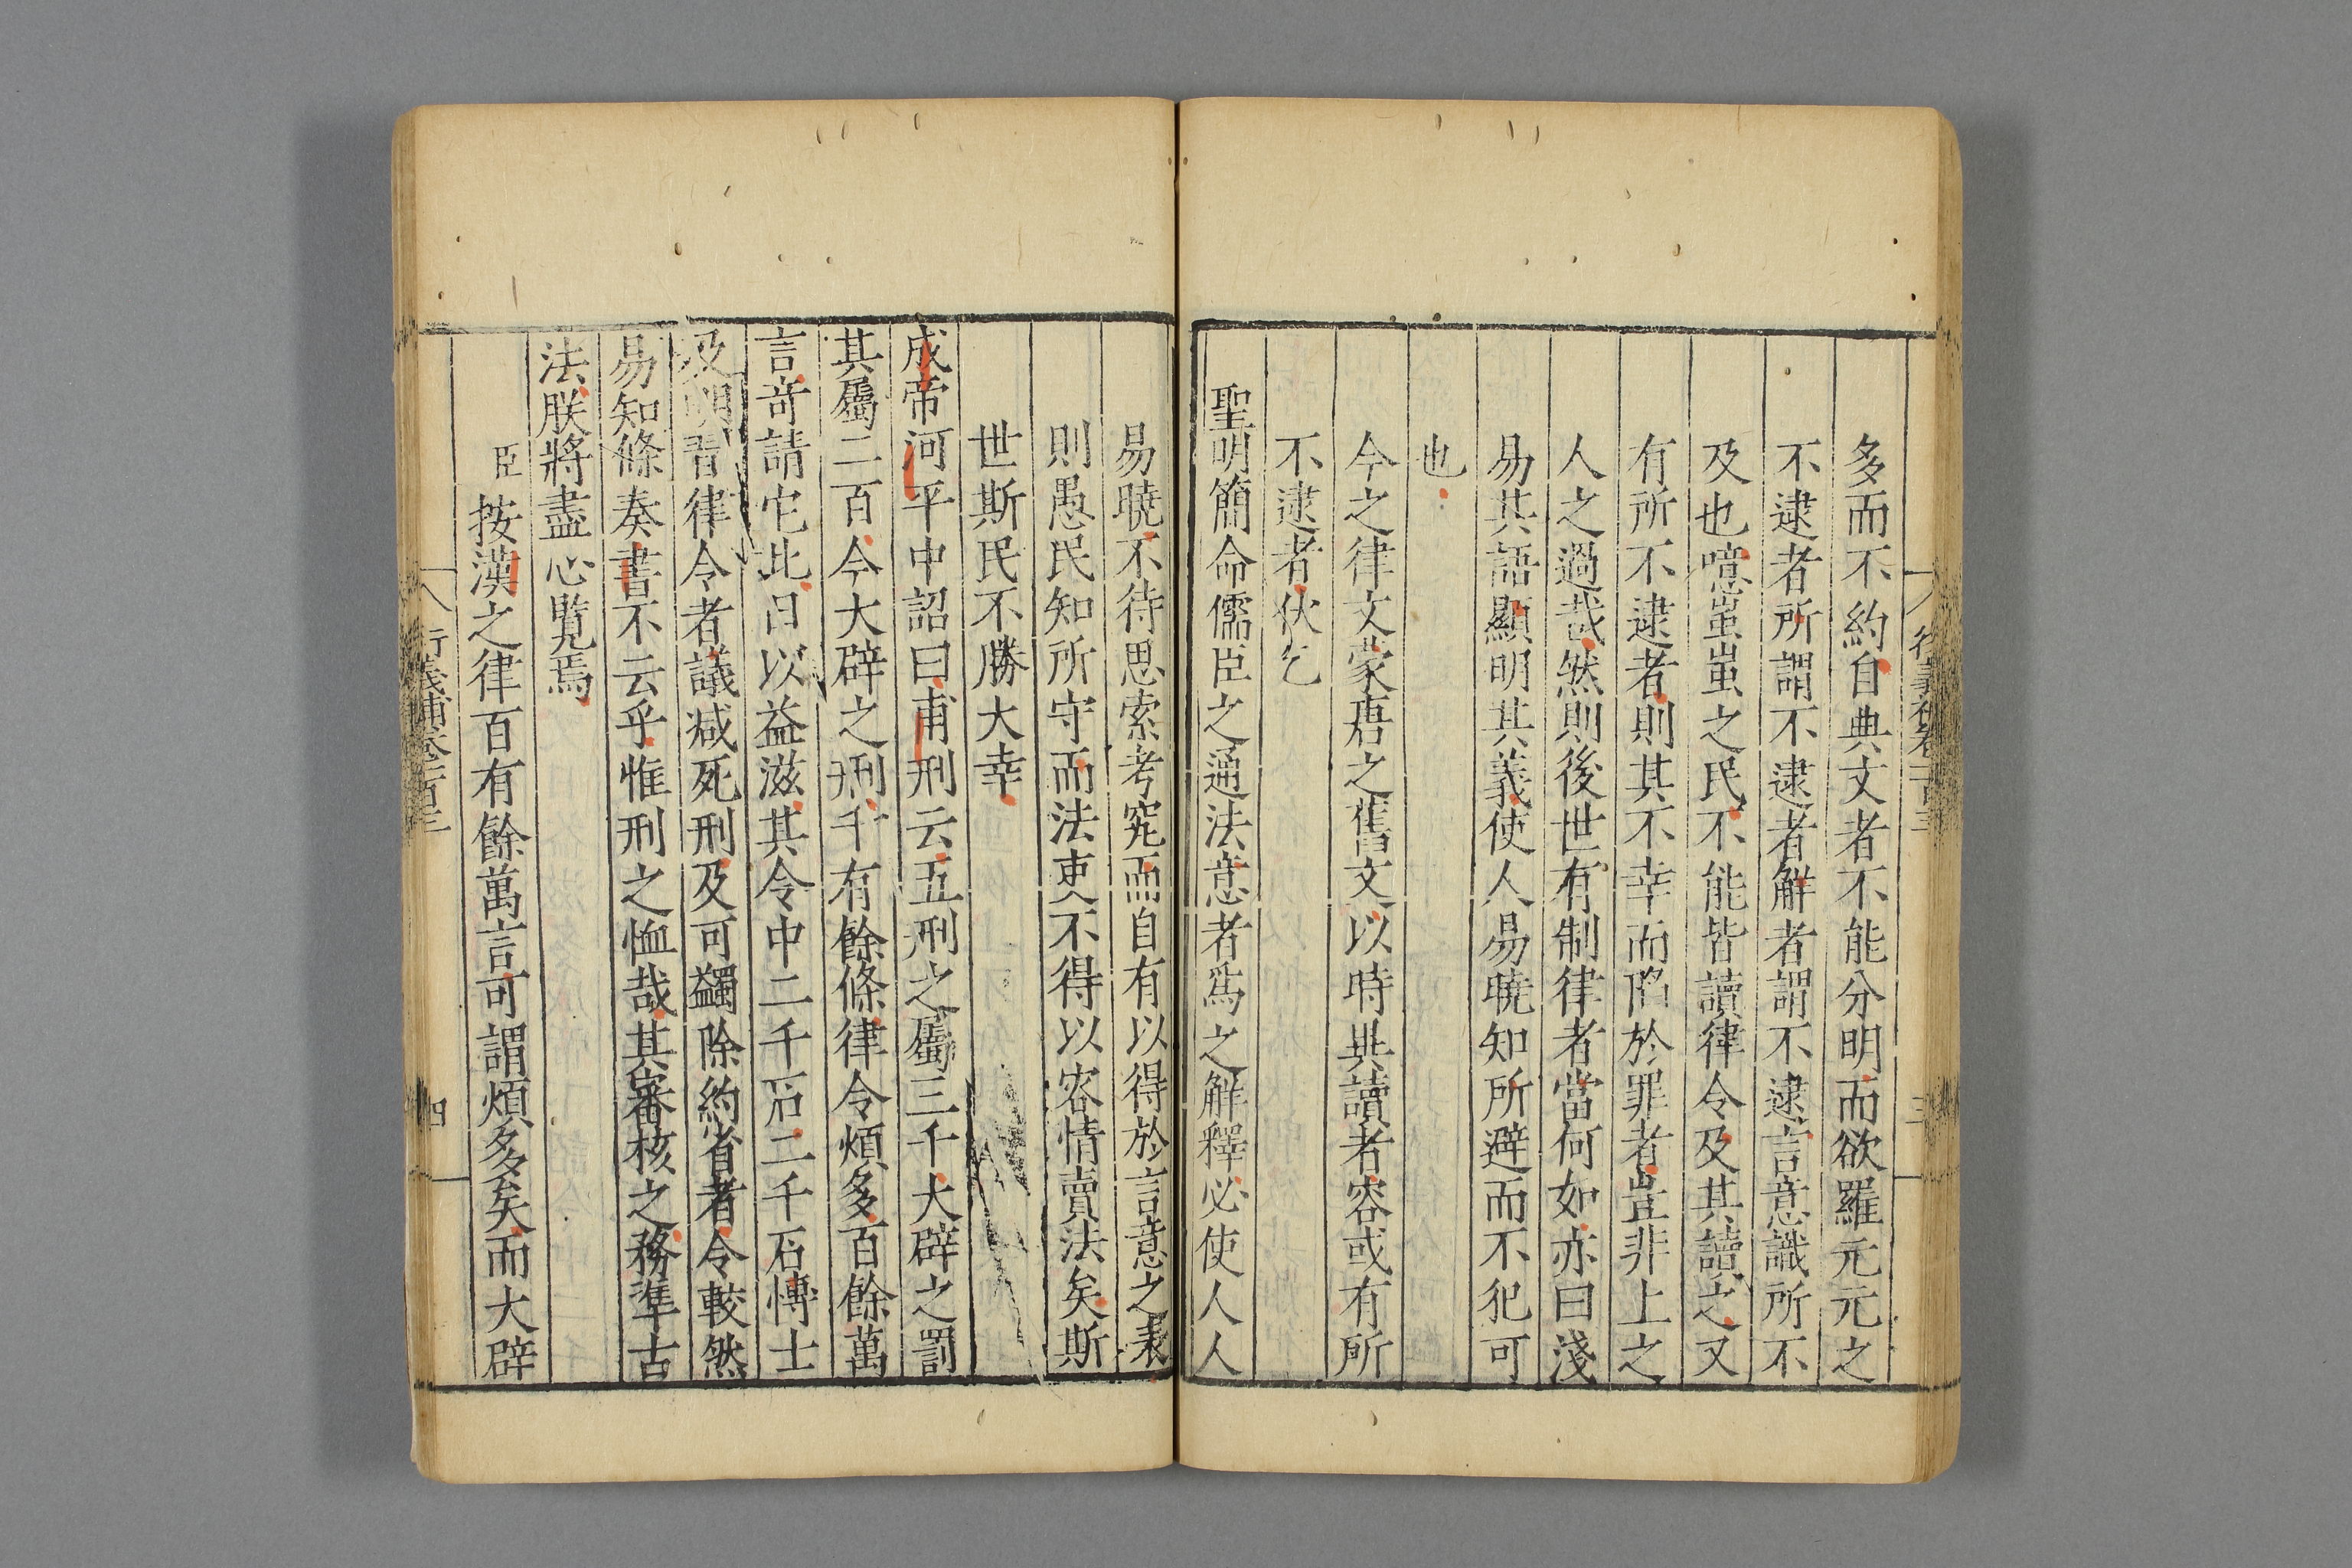 多而不約自典文者不能分明而欲羅元元之
不逮者所謂不逮者解者謂不逮言意識所不
及也噫蚩蚩之民不能皆讀律令及其讀之又
有所不逮者則其不幸而陷於罪者豈非上之
人之過哉然則後世有制律者當何如亦曰淺
易其語顯明其義使人易曉知所避而不犯可
也
今之律文蒙唐之舊文以時異讀者容或有所
不逮者伏乞
聖明簡命儒臣之通法意者爲之解釋必使人人
易曉不待思索考究而自有以得於言意之表
則愚民知所守而法吏不得以容情賣法矣斯
世斯民不勝大幸
成帝河平中詔曰甫刑云五刑之屬三千大辟之罰
其屬二百今大辟之刑千有餘條律令煩多百餘萬
言奇請它比日以益滋其令中二千石二千石博士
及明習律令者議減死刑及可蠲除約省者令較然
易知條奏書不云乎惟刑之恤哉其審核之務準古
法朕將盡心覽焉
臣按漢之律百有餘萬言可謂煩多矣而大辟
衍義補卷一百三
四